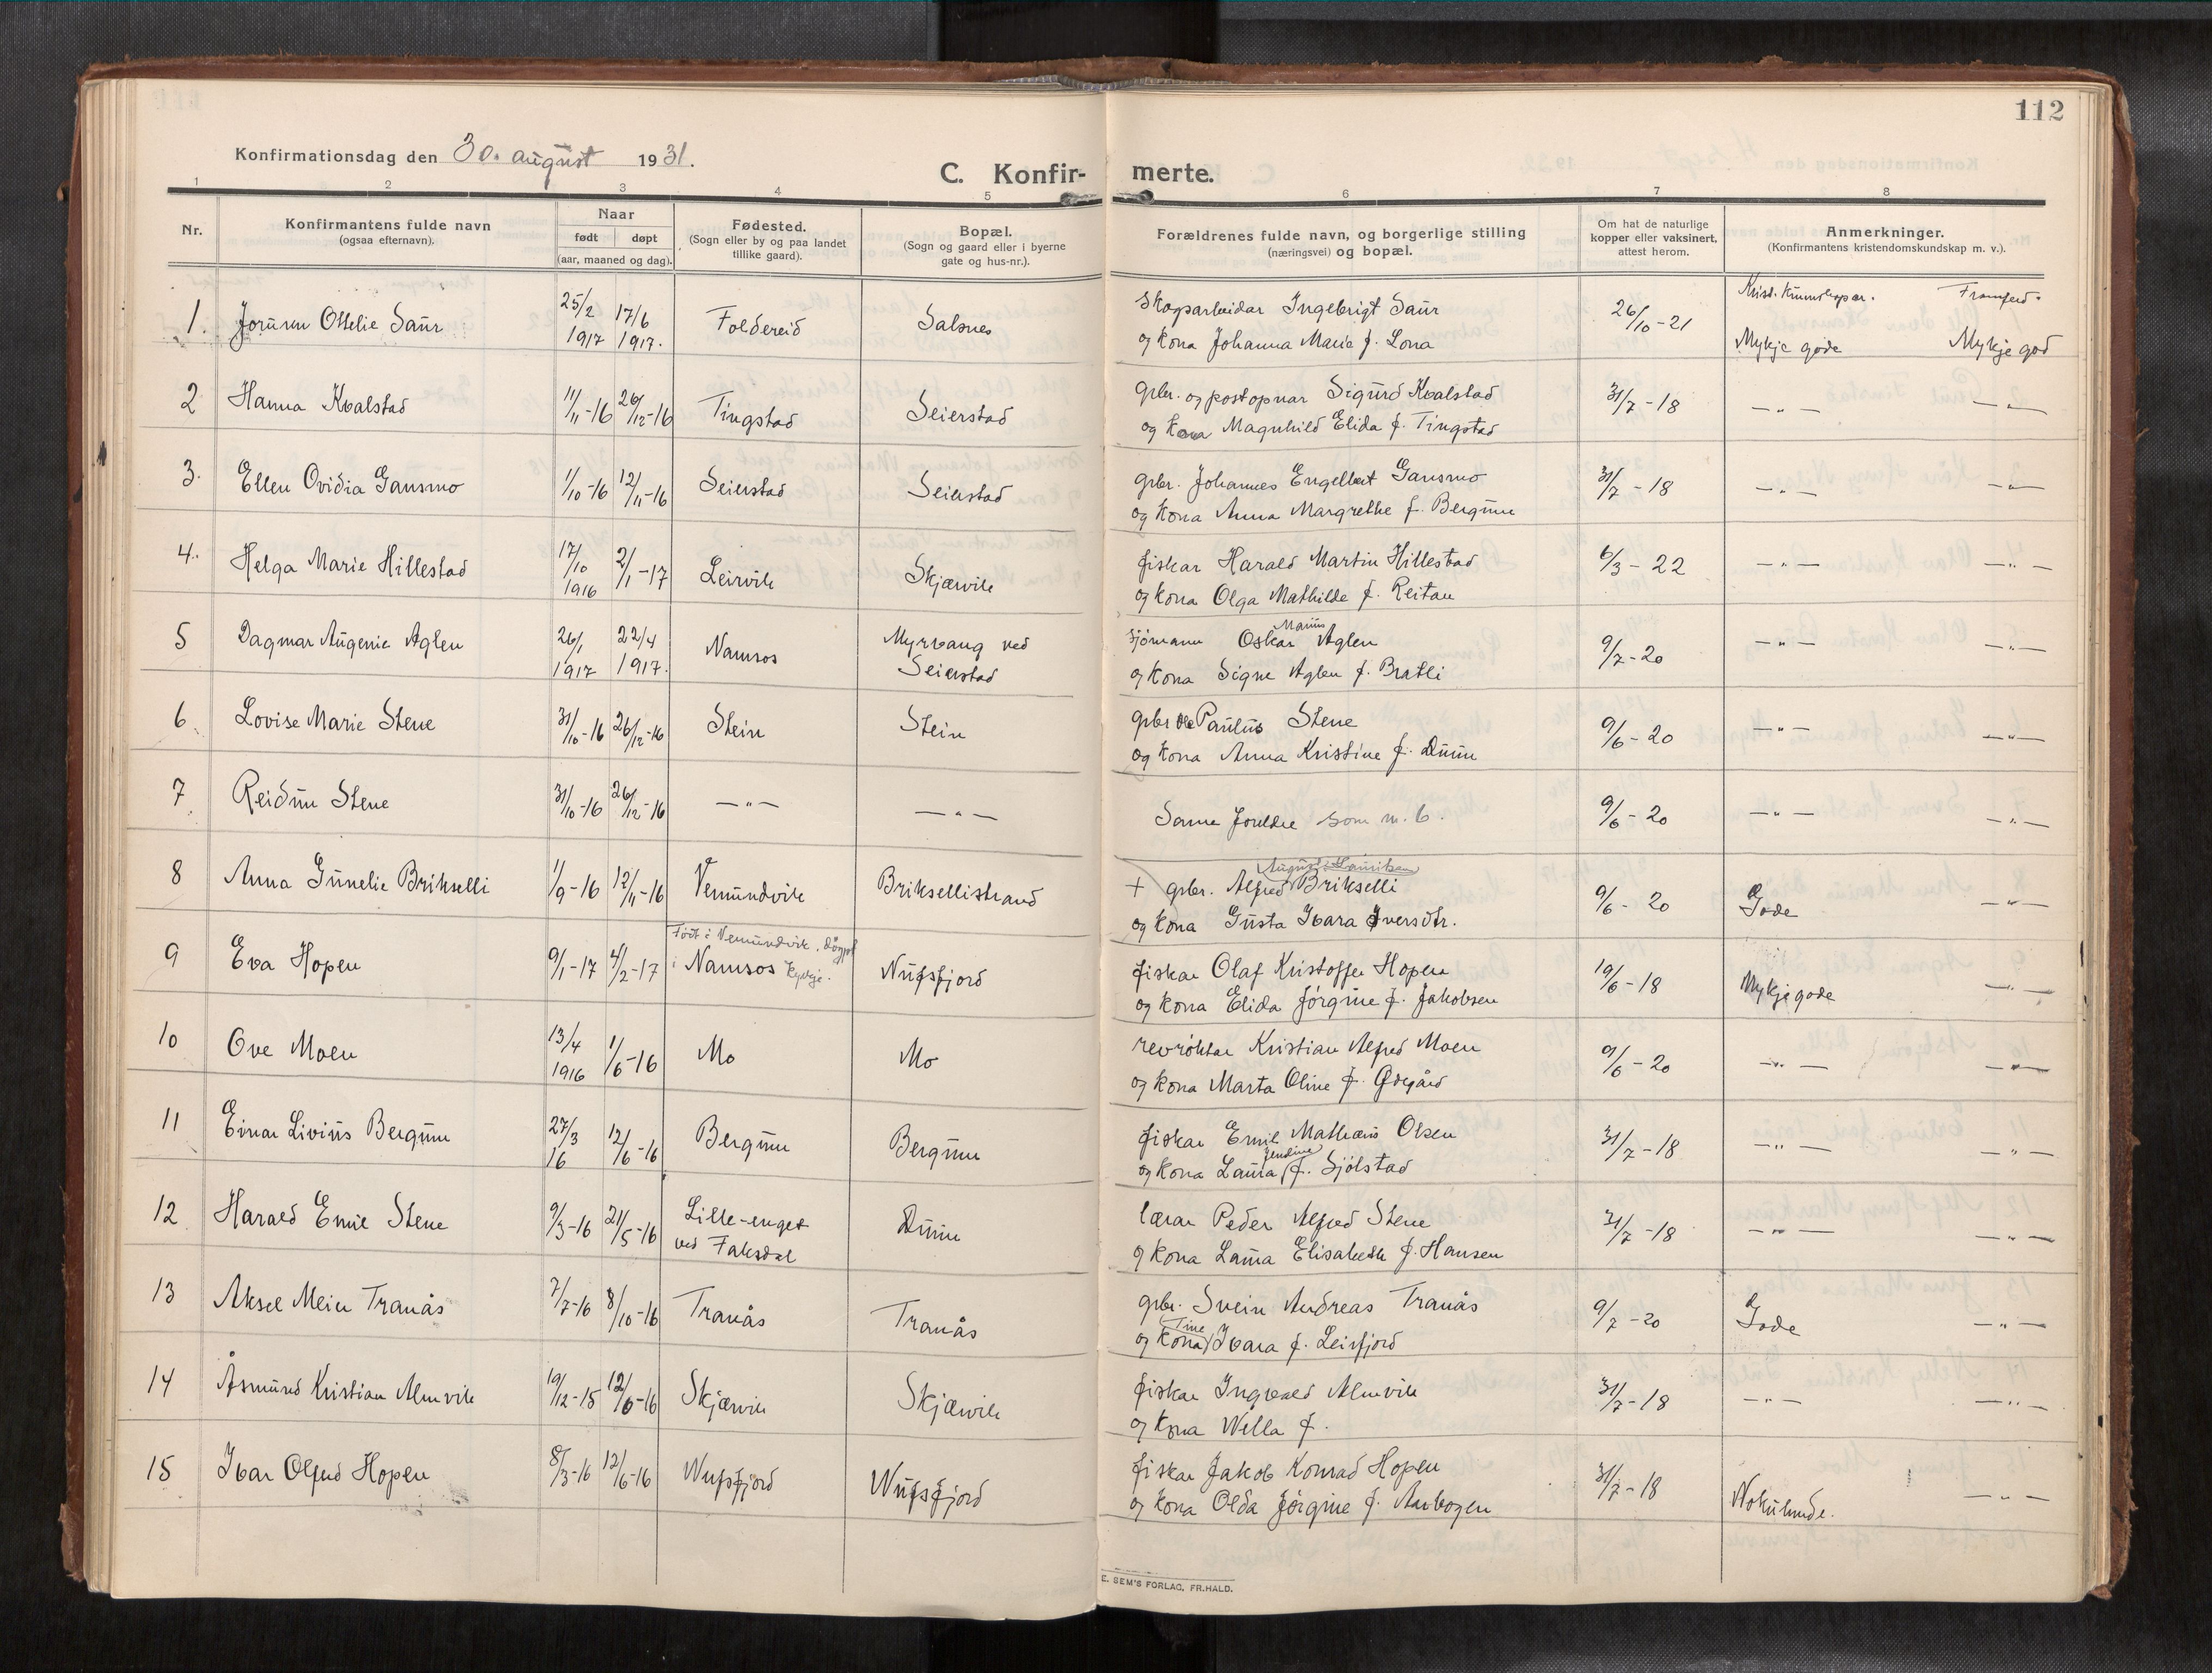 112
Konfirmationsdag den 30. august 1931.
C. Konfir- merte.
1 2 3 4 5 6 7 8
Nr.
Konfirmantens fulde navn
(ogsaa efternavn).
Naar
født døpt
(aar, maaned og dag).
Fødested.
(Sogn eller by og paa landet
tillike gaard).
Bopæl.
(Sogn og gaard eller i byerne
gate og hus-nr.).
Forældrenes fulde navn, og borgerlige stilling
(næringsvei) og bopæl.
Om hat de naturlige
kopper eller vaksinert,
attest herom.
Anmerkninger.
(Konfirmantens kristendomskundskap m. v.).
Krist. kunnskapar. Framferd.
1. Jorunn Ottelie Saur 25/2 1917 17/6 1917. Foldereid Salsnes
Skogarbeidar Ingebrigt Saur
og kona Johanna Marie f. Lona
26/10-21 Mykje gode Mykje god
2 Hanna Kvalstad 11/11-16 26/12-16 Tingstad Seierstad
gbr. og postopnar Sigurd Kvalstad
og kona Magnhild Elida f. Tingstad
31/7-18 —"— —"—
3. Ellen Ovidia Gansmo 1/10-16 12/11-16 Seierstad Seierstad
gbr. Johannes Engelbert Gansmo
og kona Anna Margrethe f. Bergum
31/7-18 —"— —"—
4. Helga Marie Hillestad 17/10 1916 2/1-17 Leirvik Skjærvik
fiskar Harald Martin Hillestad
og kona Olga Mathilde f. Reitan
6/3-22 —"— —"—
5 Dagmar Augenie Aglen 26/1 1917 22/4 1917. Namsos Myrvang ved
Seierstad
Marius
sjömann Oskar Aglen
og kona Signe Aglen f. Bratli
9/7-20 —"— —"—
6 Lovise Marie Stene 31/10-16 26/12-16 Stein Stein
gbr Ole Paulus Stene
og kona Anna Kristine f. Duun
9/6-20 —"— —"—
7 Reidun Stene 31/10-16 26/12-16 —"— —"—
Same foreldre som nr. 6.
9/6-20 —"— —"—
8 Anna Gunelie Brikselli 1/9-16 12/11-16 Vemundvik Briksellistrand
August Lauritsen
+ gbr. Alfred Brikselli
og kona Gusta Ivara Iversdtr.
9/6-20 Gode —"—
9 Eva Hopen 9/1-17 4/2-17
Født i Vemundvik. Døypt
i Namsos kyrkje. Nufsfjord
fiskar Olaf Kristoffer Hopen
og kona Elida Jørgine f. Jakobsen
19/6-18 Mykje gode —"—
10 Ove Moen 13/4 1916 1/6-16 Mo Mo
revröktar Kristian Alfred Moen
og kona Marta Oline f. Ødegård
9/6-20 —"— —"—
11 Einar Livius Bergum 27/3 16 12/6-16 Bergum Bergum
fiskar Emil Mathæus Olsen
Jendine
og kona Laura f. Sjölstad
31/7-18 —"— —"—
12 Harald Emil Stene 9/3-16 21/5-16 Lille-enget
ved Faksdal Duun
lærar Peder Alfred Stene
og kona Laura Elisabeth f. Hansen
31/7-18 —"— —"—
13 Aksel Meier Tranås 7/7-16 8/10-16 Tranås Tranås
gbr. Svein Andreas Tranås
Tine
og kona Ivara f. Leirfjord
9/7-20 Gode —"—
14 Åsmund Kristian Almvik 19/12-15 12/6-16 Skjærvik Skjærvik
fiskar Ingvald Almvik
og kona Willa f.
31/7-18 —"— —"—
15 Ivar Olfred Hopen 8/3-16 12/6-16 Nufsfjord Nufsfjord
fiskar Jakob Konrad Hopen
og kona Olda Jørgine f. Aunbogen
31/7-18 Nokulunde. —"—
E. SEM'S FORLAG, FR.HALD.